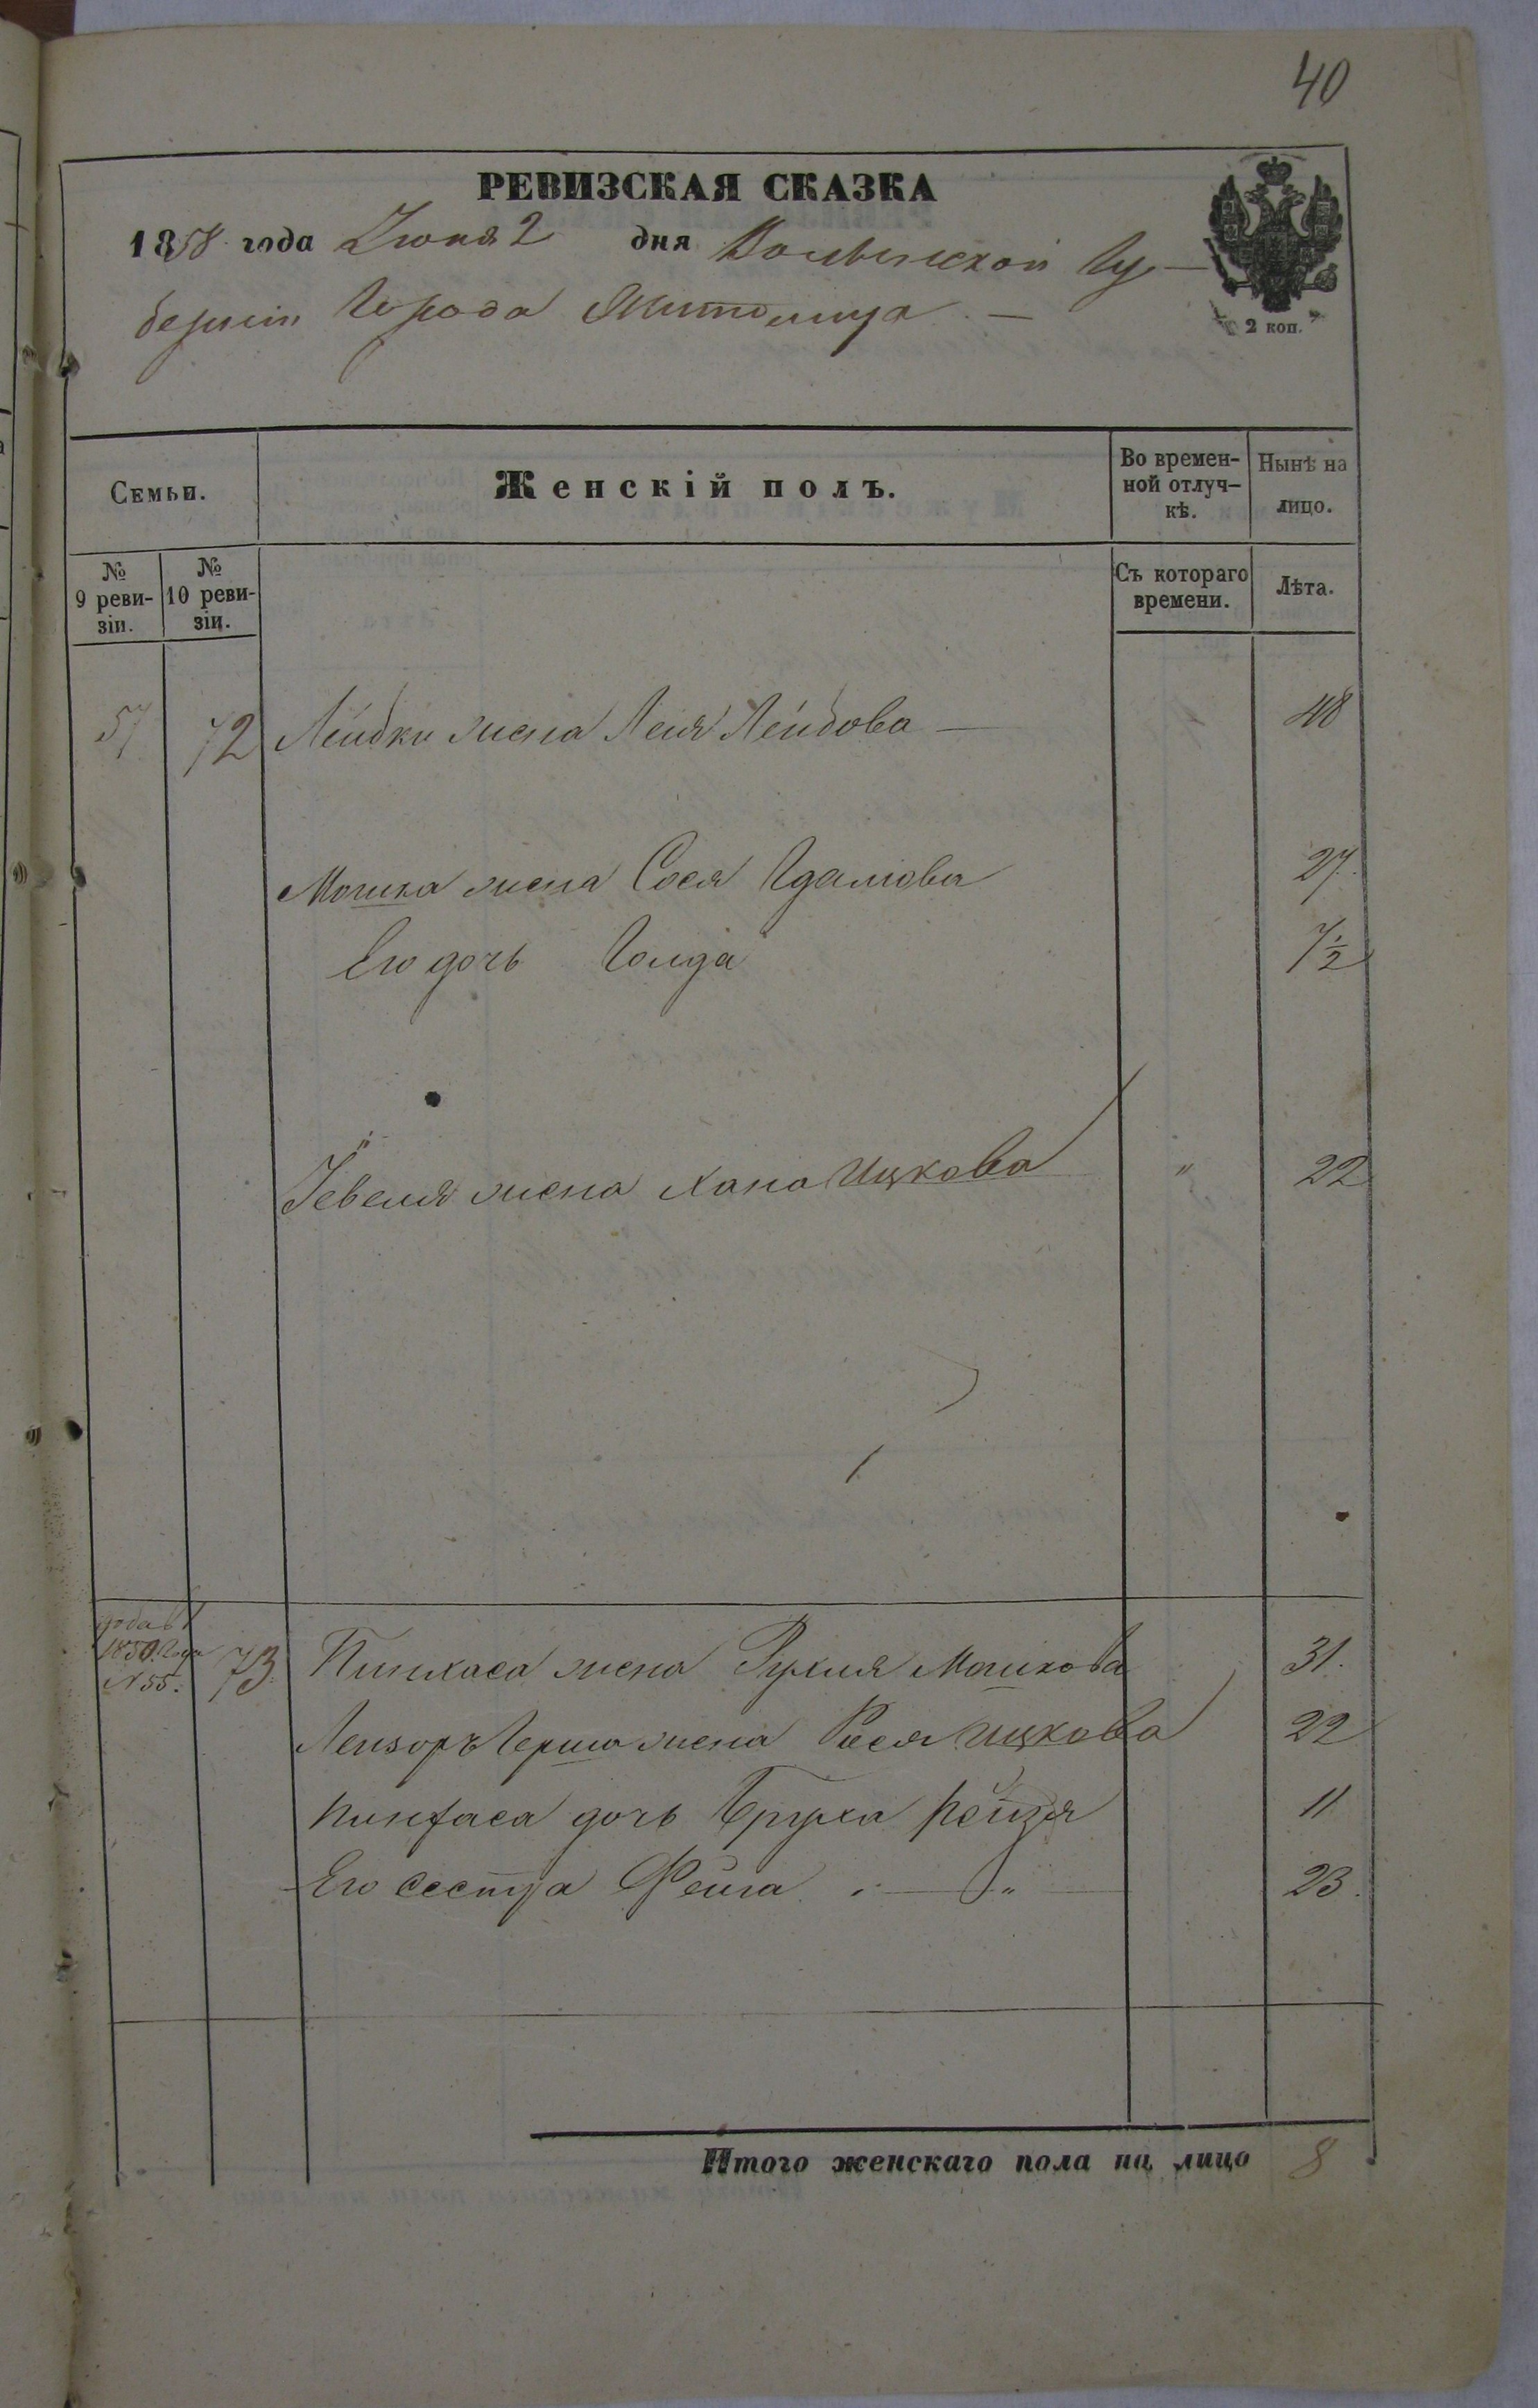 40
РЕВИЗСКАЯ СКАЗКА
1858 года Июня 2 дня Волынской Гу-
берніи Города Житомира —
2 коп.
Семьи.
Женскій полъ.
Во времен-
ной отлуч-
кѣ.
Нынѣ на
лицо.
№
9 реви-
зіи.
№
10 реви-
зіи.
Съ котораго
времени.
Лѣта.
57 72 Лейбки жена Лея Лейбова — 48
Мошка жена Сося Гдалiова 27.
Его дочь Голда 7½
Зевеля жена Хана Ицкова " 22
добав.
1850 года
N 55.
73 Пинхаса жена Рухля Мошкова 31.
Лейзоръ Герша жена Рося Ицкова 22
Пинхаса дочь Бруха Рейзя 11
Его сестра Фейга 23.
Итого женскаго пола на лицо 8